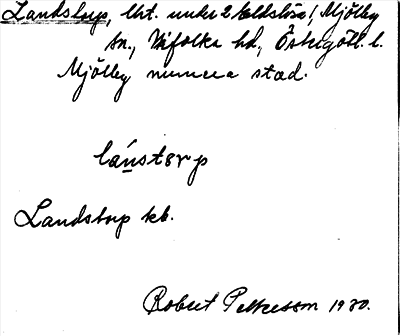 Landstorp, lht. under 2 Eldslösa, Mjölby
sn., Vifolka hd., Östergötl. l.
Mjölby numera stad.
lánstərp
Landstorp kb.
Robert Pettersson 1930.